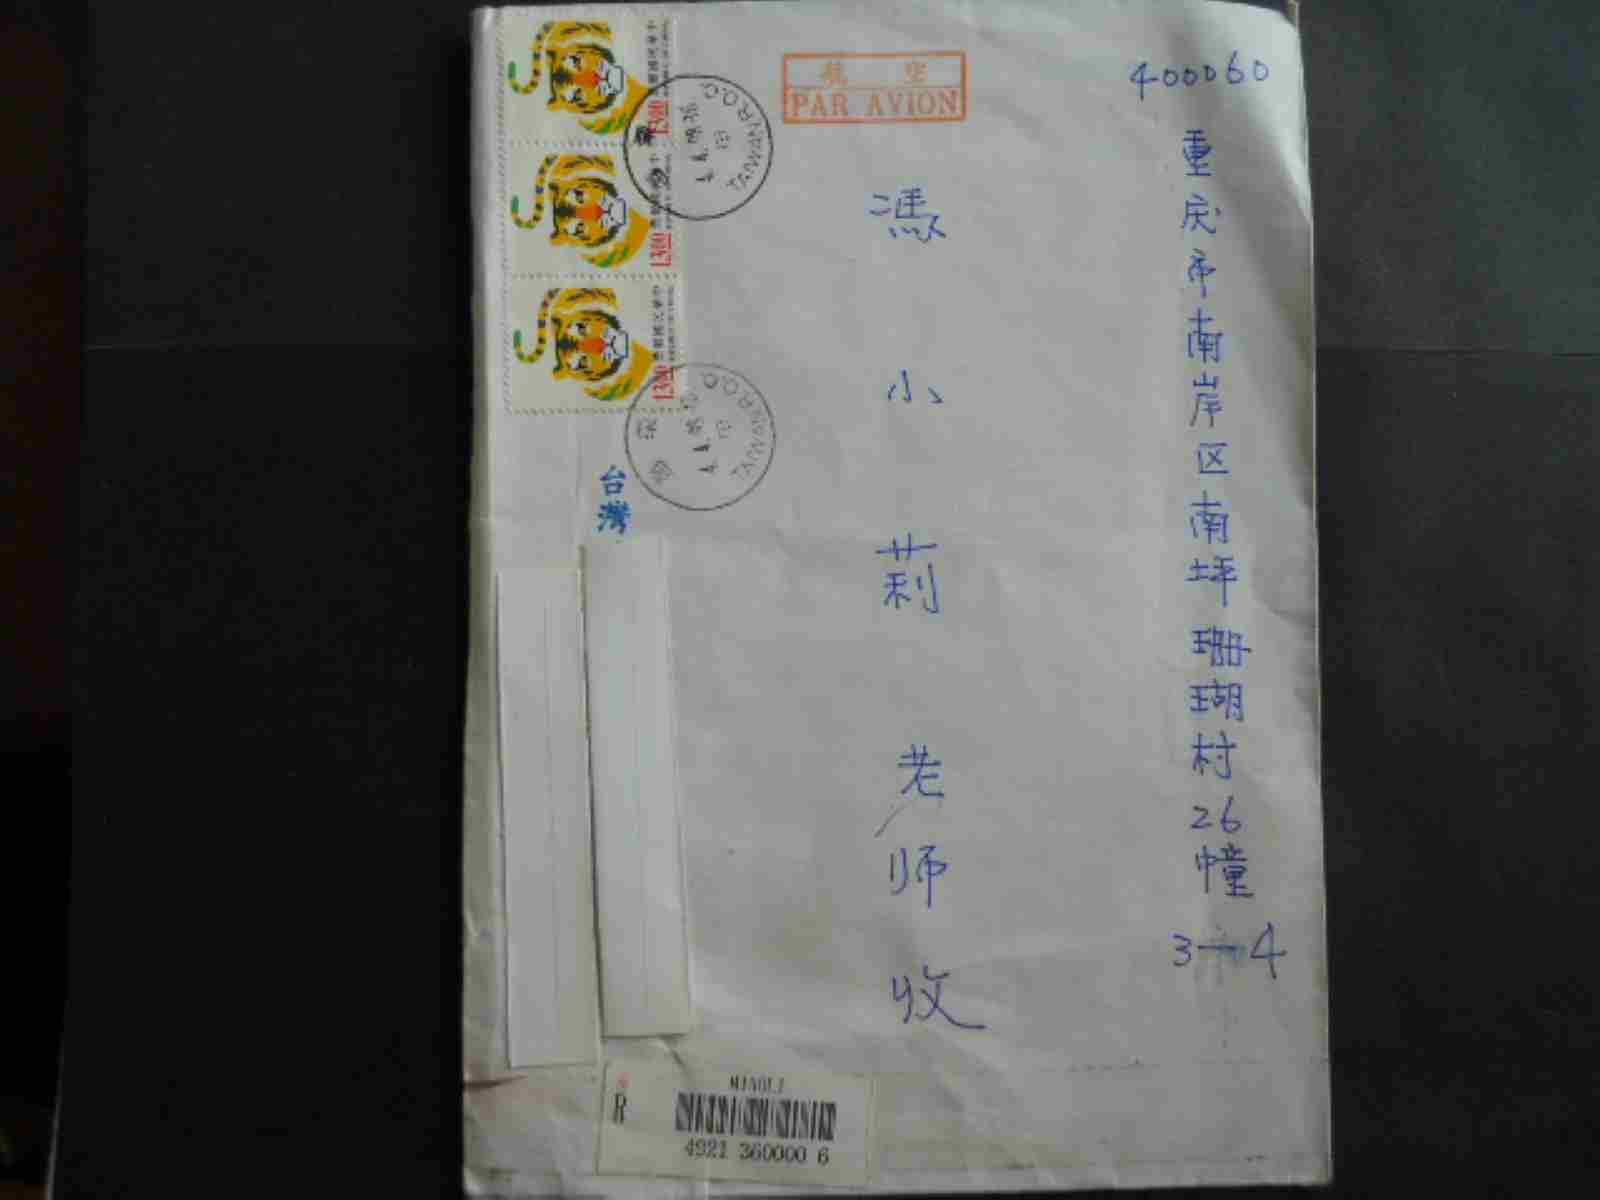 400060
重庆市南岸区南坪珊瑚村26幢
3-4
馮小莉老师收
航空
PAR AVION
中華民國郵票
1300
中華民國郵票
1300
中華民國郵票
1300
TAIWAN R.O.C.
TAIWAN R.O.C.
台灣
MIAOLI
R
4921 360000 6